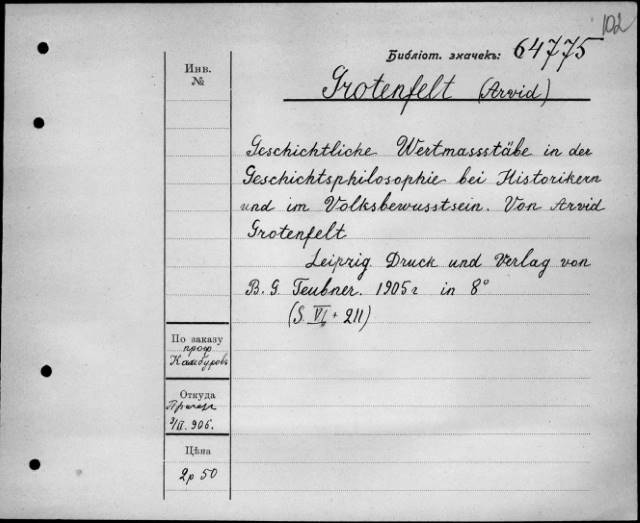 102
Библіот. значекъ: 64775
Инв.
№
Grotenfelt (Arvid)
Geschichtliche Wertmassstäbe in der
Geschichtsphilosophie bei Historikern
und im Volksbewusstsein. Von Arvid
Grotenfelt
Leipzig Druck und Verlag von
B. G. Teubner. 1905 г in 8°
(S. VI + 211)
По заказу
проф
Откуда
2/II. 906.
Цѣна
2 р 50